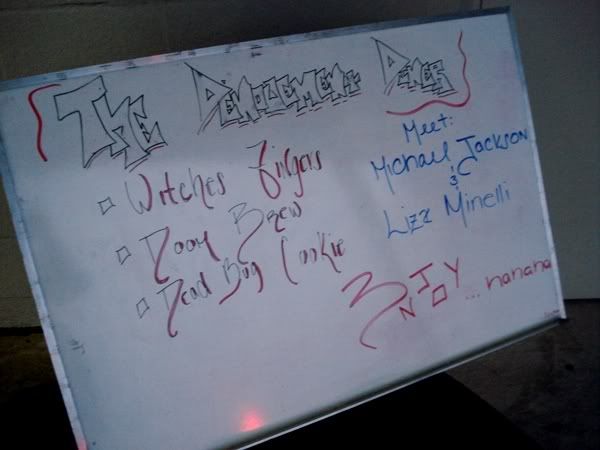 THE DINER
Witches Fingers
Doom Brew
Dead Bug Cookie
Meet:
Michael Jackson
&
Liza Minelli
ENJOY...nanana